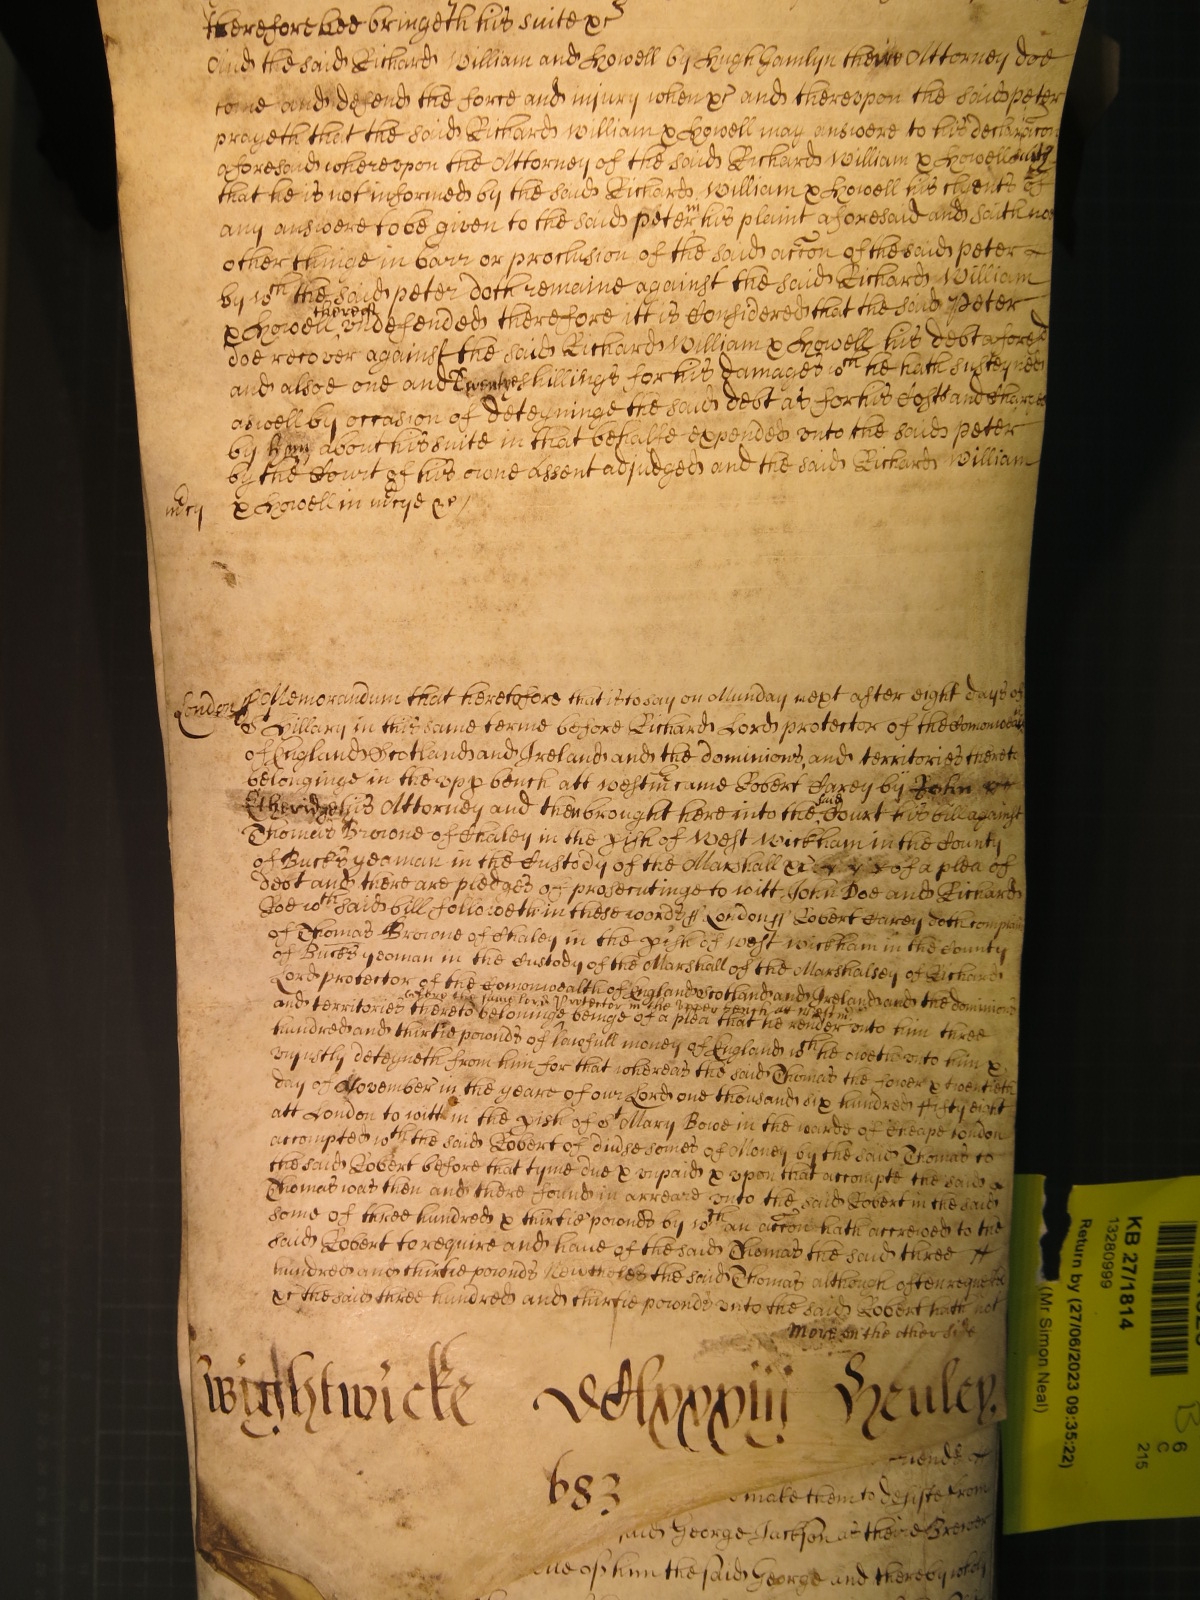 therefore hee bringeth his suite &c
And the said Richard William and Howell by Hugh Hamlyn theire Attorney doe
come and defend the force and injury when &c and thereupon the said Peter
prayeth that the said Richard William & Howell may answere to his declaracon
aforesaid whereupon the Attorney of the said Richard William & Howell saith
that he is not informed by the said Richard William & Howell his clients of
any answere to be given to the said Peter in his plaint aforesaid and saith noe
other thinge in barr or preclusion of the said accon of the said Peter
by wch the said Peter doth remaine against the said Richard William
& Howell thereof undefended therefore itt is Considered that the said Peter
doe recover against the said Richard William & Howell his debt aforesd
and alsoe one and Twenty shillings for his damages wch he hath susteyned
aswell by occasion of deteyninge the said debt as for his Costs and Charges
by him about his suite in that behalfe expended unto the said Peter
by the Court of his owne Assent adjudged and the said Richard William
mcy & Howell in mcye &c /
London // Memorandum that heretofore that is to say on Munday next after eight dayes of
St Hillary in this same terme before Richard Lord protector of the Comonwealth
of England Scotland and Ireland and the dominions and territories thereto
belonginge in the upp bench att Westm came Robert Carey by John
Etheridge his Attorney and then brought here into the said Court his bill against
Thomas Browne of Chaley in the pish of West Wickham in the County
of Bucks yeoman in the Custody of the Marshall &c of a plea of
debt and there are pledges of prosecutinge to witt John Doe and Richard
Roe wch said bill followeth in these words // London // Robert Carey doth complain
of Thomas Browne of Chaley in the pish of West Wickham in the County
of Bucks yeoman in the Custody of the Marshall of the Marshalsey of Richard
Lord protector of the Comonwealth of England Scotland and Ireland and the dominions
before the same lord Protector in the upper bench at Westm
and territories thereto belonginge beinge of a plea that he render unto him three
hundred and thirtie pounds of lawfull money of England wch he oweth unto him &
uniustly deteyneth from him for that whereas the said Thomas the fower & twentieth
day of November in the yeare of our Lord one thousand six hundred fifty eight
att London to witt in the pish of St Mary Bowe in the warde of Cheape London
accompted wth the said Robert of divse somes of Money by the said Thomas to
the said Robert before that tyme due & unpaid & upon that accompte the said
Thomas was then and there found in arreare unto the said Robert in the said
some of three hundred & thirtie pounds by wch an accon hath accrewed to the
said Robert to require and have of the said Thomas the said three
hundred and thirtie pounds Nevtheles the said Thomas although often requested
&c the said three hundred and thirtie pounds unto the said Robert hath not
More on the other side
Wightwicke Henley.
683
make them to desiste from
said George Jackson as theire Brewer
use of him the said George and thereby
KB 27/1814
13280999
Return by (27/06/2023 09:35:22)
(Mr Simon Neal)
B
6
C
215